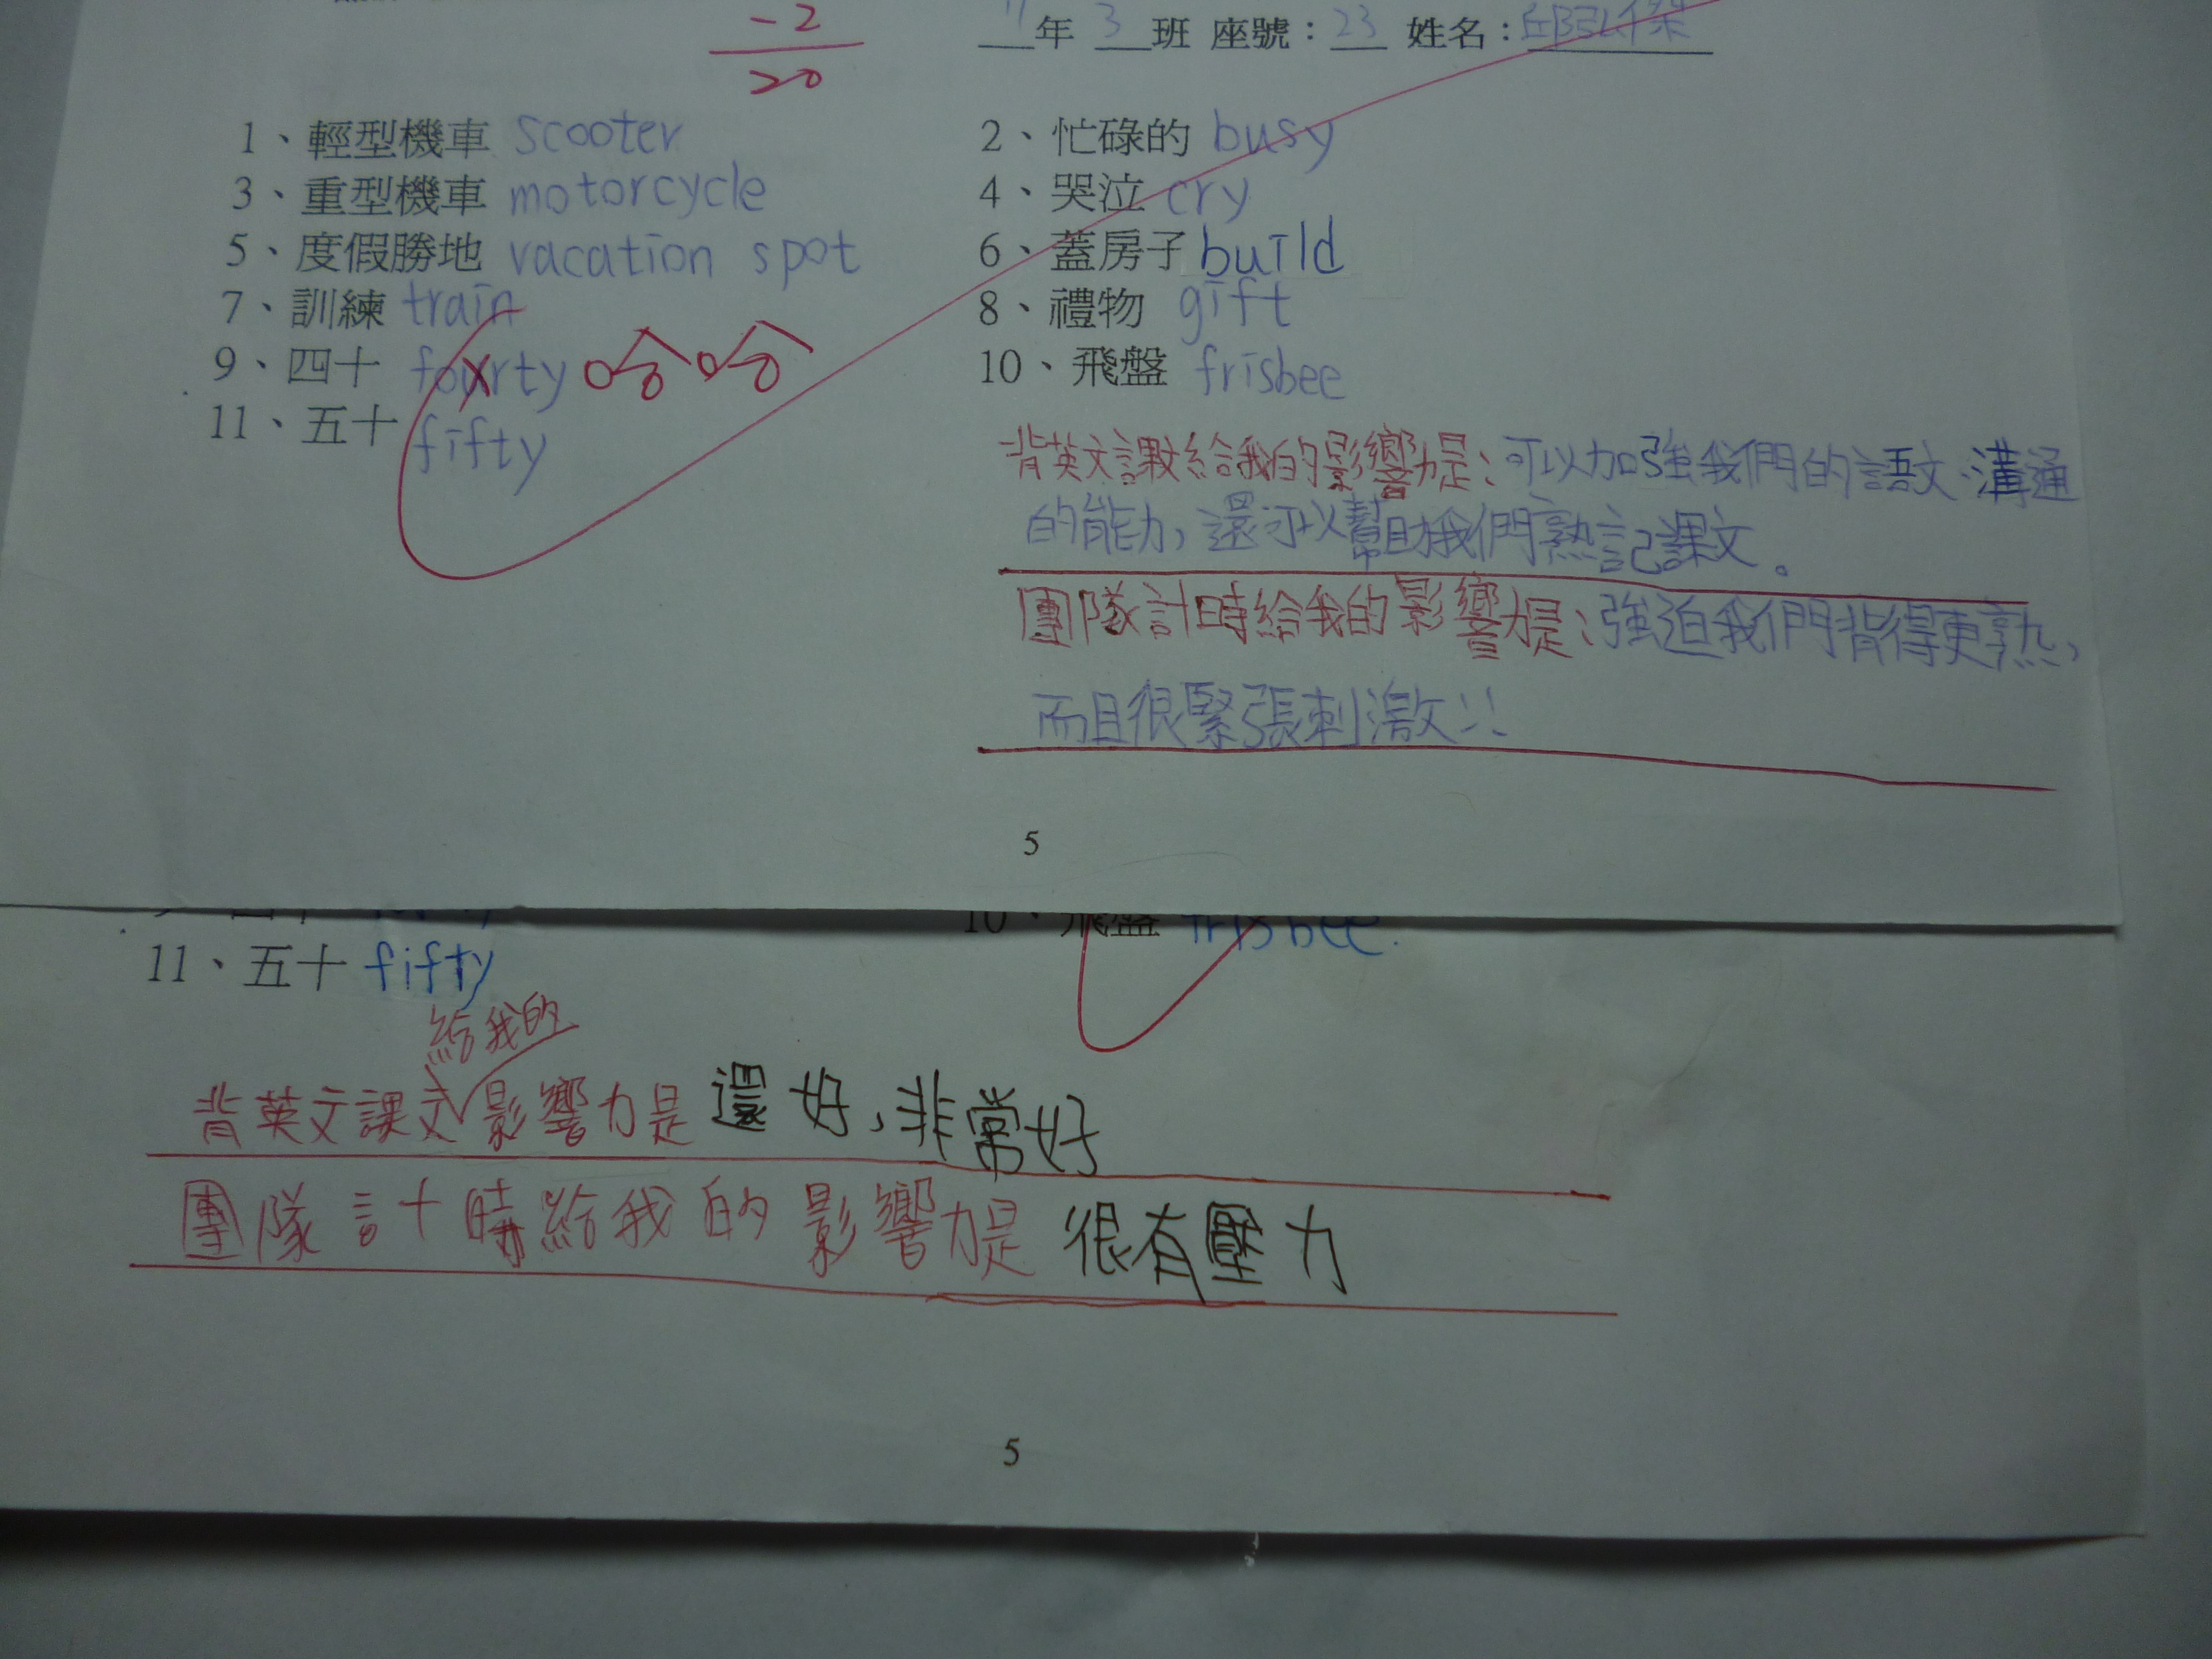 -2
20
年 3 班 座號：23 姓名：
1、輕型機車 scooter 2、忙碌的 busy
3、重型機車 motorcycle 4、哭泣 cry
5、度假勝地 vacation spot 6、蓋房子 build
7、訓練 train 8、禮物 gift
9、四十 fourty 哈哈 10、飛盤 frisbee
11、五十 fifty
背英文課文給我的影響力是：可以加強我們的語文、溝通
的能力，還可以幫助我們熟記課文。
團隊計時給我的影響力是：強迫我們背得更熟，
而且很緊張刺激！！
5
10、飛盤 frisbee.
11、五十 fifty
給我的
背英文課文影響力是 還好，非常好
團隊計時給我的影響力是 很有壓力
5